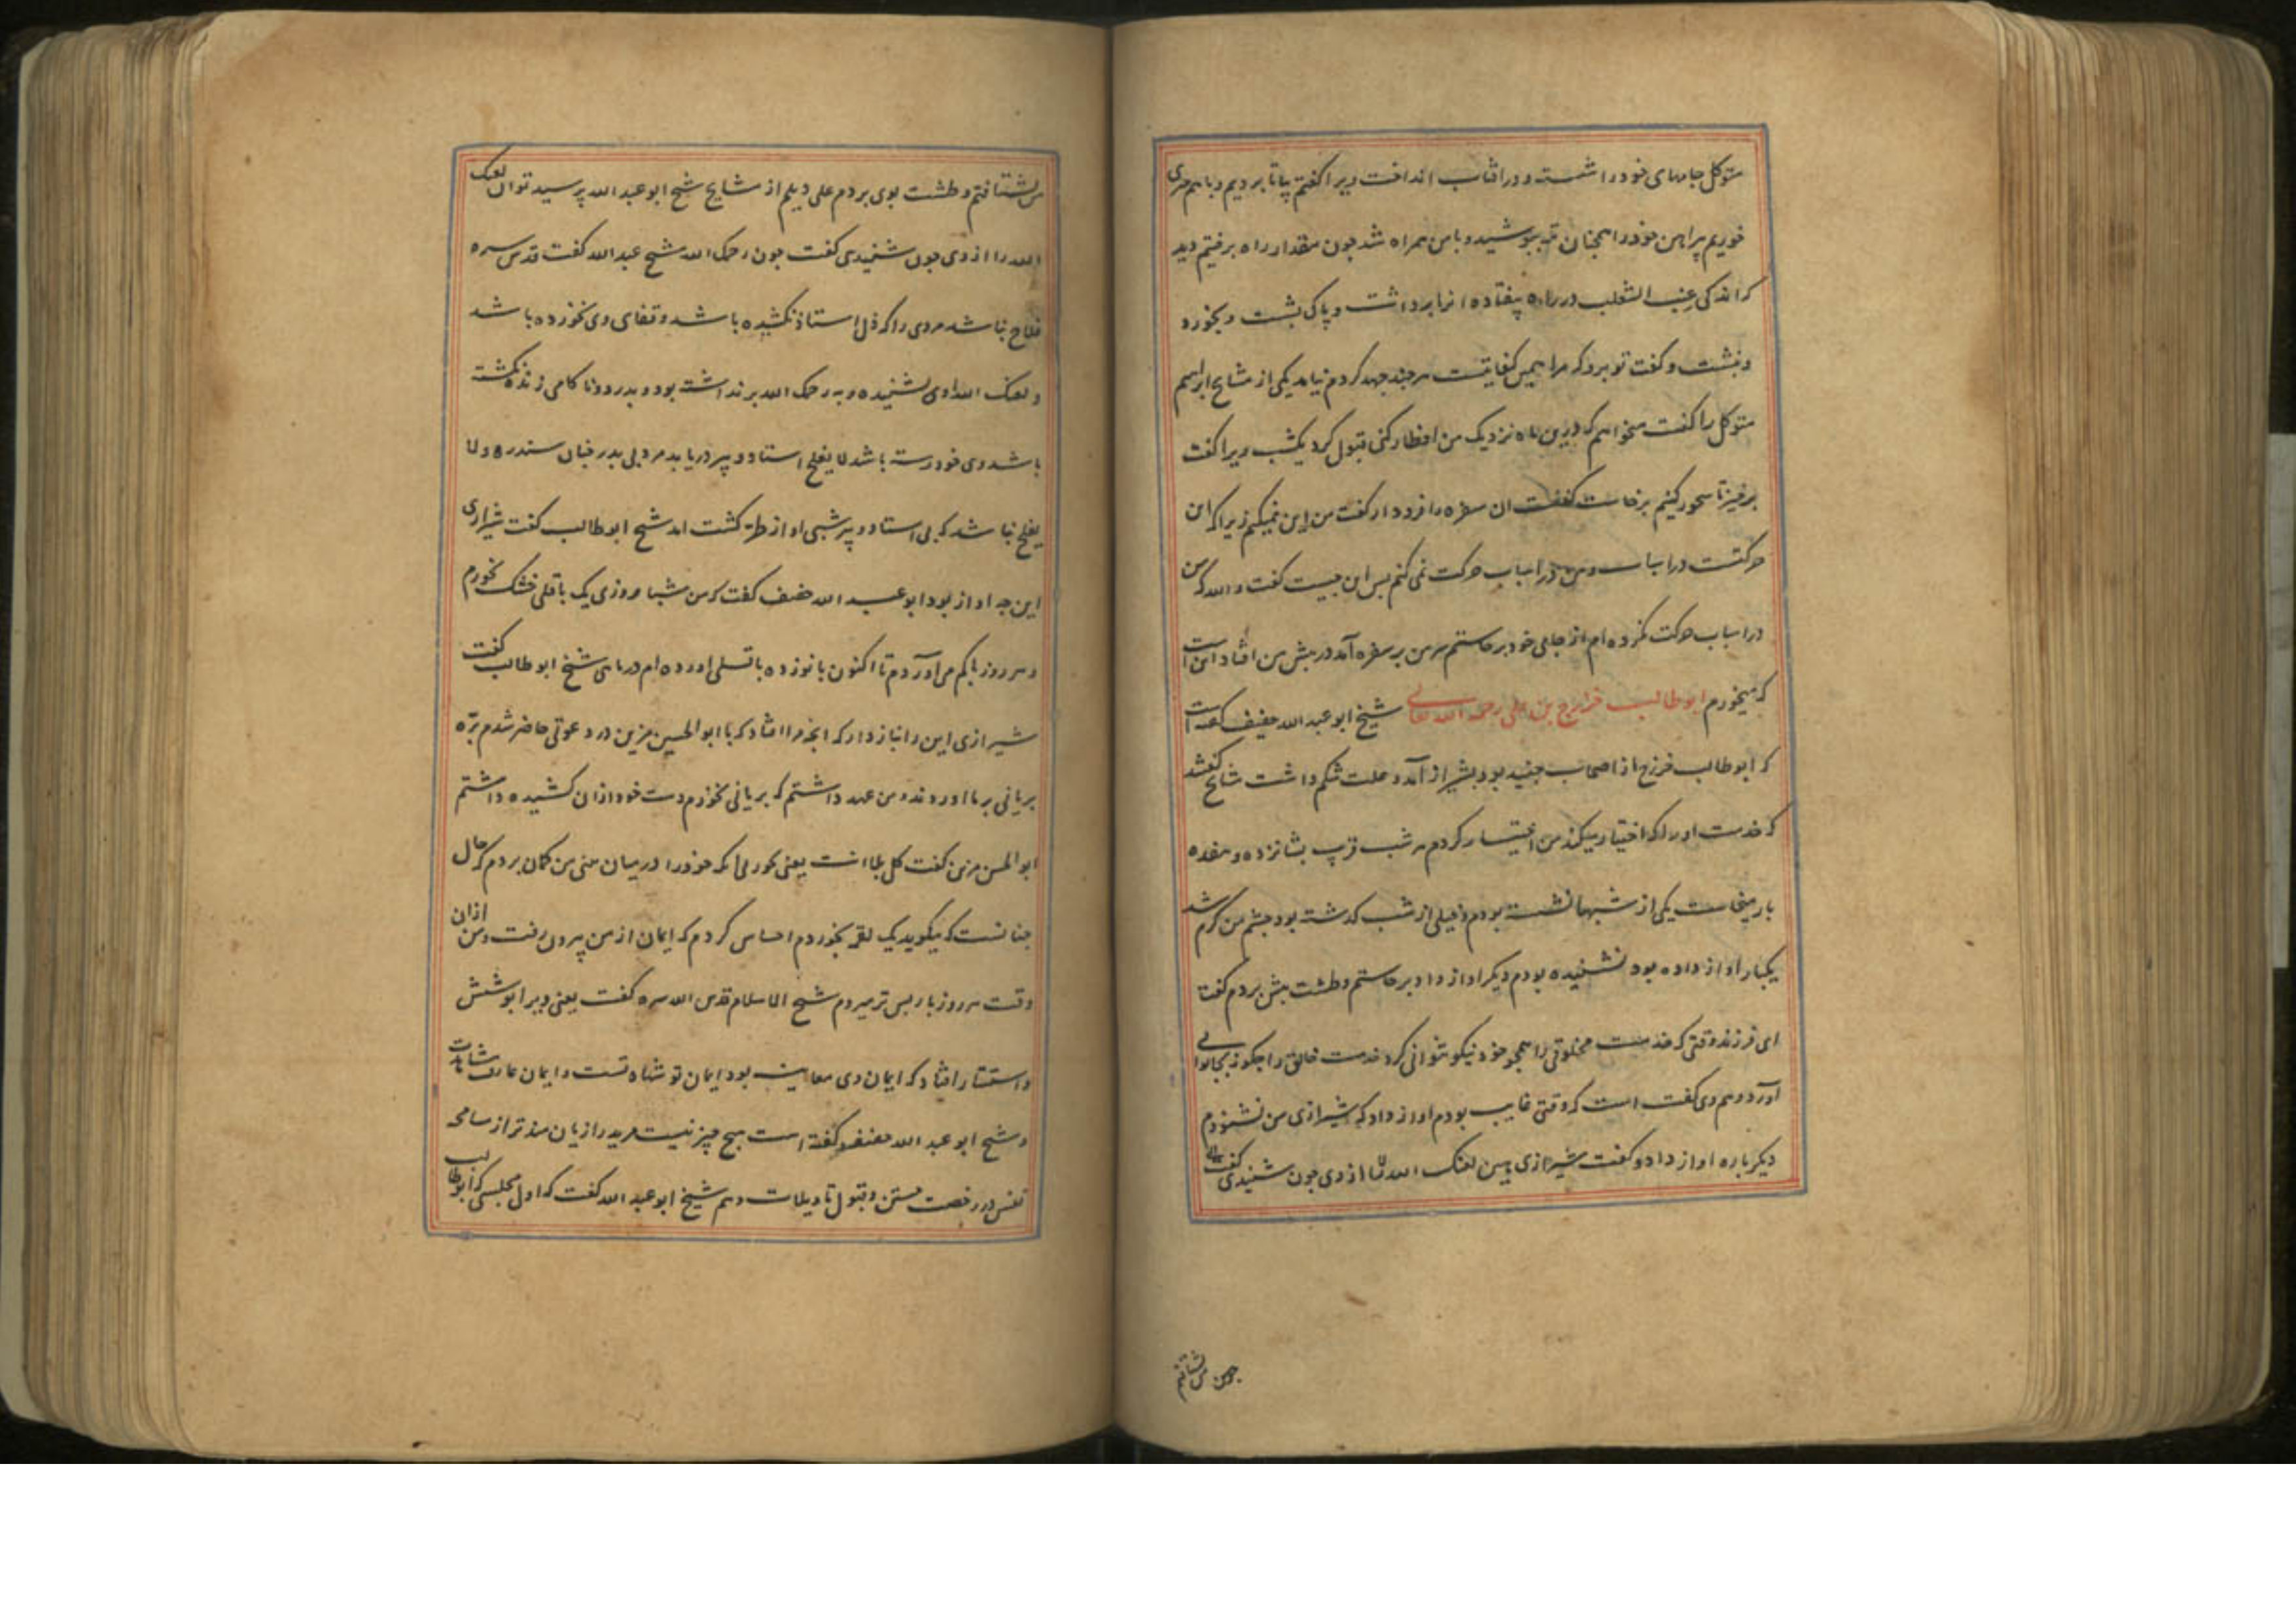 متوکل جامهای خود را شست و در افتاب انداخت ویرا گفتم بیا تا برویم و باهم چیزی
خوریم پیراهن خود را همچنان تر بپوشید و با من همراه شد چون مقدار راه برفتیم دید
که اندکی عنب الثعلب در راه بیفتاده انرا برداشت و پاک بشست و بخورد
و بنشست و گفت تو برو که مرا همین کفایتست هر چند جهد کردم نیامد یکی از مشایخ ابراهیم
متوکل را گفت میخواهم که درین ماه نزدیک من افطار کنی قبول کرد یکشب ویرا گفت
برخیز تا سحور کنیم برخاست گفت ان سفره را فرود ار گفت من این نمیکنم زیرا که این
حرکتست در اسباب و من در اسباب حرکت نمی کنم پس این چیست گفت والله که من
در اسباب حرکت نکرده ام از جای خود برخاستم سر من بر سفره آمد در پیش من افتاد این است
که میخورم ابوطالب خزرج بن علی رحمه الله تعالی شیخ ابو عبد الله خفیف گفته است
که ابوطالب خزرج از اصحاب جنید بود بشیراز آمد و علت شکم داشت مشایخ گفتند
که خدمت او را که اختیار میکند من اختیار کردم هر شب قریب بشانزده و هفده
بار میخاست یکی از شبها نشسته بودم و خیلی از شب گذشته بود چشم من گرم شد
یکبار اواز داده بود نشنیده بودم دیگر اواز داد برخاستم و طشت پیش بردم گفتا
ای فرزند وقتی که خدمت مخلوقی را همچو خود نیکو نتوانی کرد خدمت خالق را چگونه بجای
آورد و هم وی گفت است که وقتی غایب بودم اواز داد که شیرازی من نشنودم
دیگر باره اواز داد و گفت شیرازی هین لعنک الله از وی چون شنیدی گفت
من بشتافتم و طشت بوی بردم علی دیلم از مشایخ شیخ ابو عبد الله پرسید تو آن لعنک
الله را از وی چون شنیدی گفت چون رحمک الله شیخ عبد الله گفت قدس سره
فلاح نباشد مردی را که ذل استاد نکشیده باشد و قفای وی نخورده باشد
و لعنک الله او نشنیده و به رحمک الله برنداشته بود و بدرد و ناکامی زنده نگشته
باشد وی خودرسته باشد لا یفلح استاد و پیر دریابد مرد بی پدر
یفلح نباشد که بی استاد و پیر شیخ ابوطالب گفت شیرازی
این چه اواز بود ابو عبد الله خفیف گفت که من شبا روزی یک باقلی خشک خورم
و هر روز باکم می آوردم تا اکنون بانوزده باقلی آورده ام در ماهی شیخ ابوطالب گفت
شیرازی این را نیاز دار که انچه مرا افتاد که با ابو الحسین مزین در دعوتی حاضر شدم بره
بریانی بر ما اوردند و من عهد داشتم که بریانی نخورم دست خود ازان کشیده داشتم
ابو الحسن مزین گفت کل بلا انت یعنی بخور بی انکه خود را در میان بینی من گمان بردم که حال
چنانست که میگوید یک لقمه بخوردم احساس کردم که ایمان از من بیرون رفت و من ازان
وقت هر روز باز پس تر میروم شیخ الاسلام قدس الله سره گفت یعنی ویرا پوشش
و استتار افتاد که ایمان وی معاینه بود ایمان تو شهادتست و ایمان عارف مشاهدت
و شیخ ابو عبد الله خفیف گفته است هیچ چیز نیست مرید را زیان مند تر از مسامحه
نفس در رخصت جستن و قبول تاویلات و هم شیخ ابو عبد الله گفت که اول مجلسی که ابوطالب
چون من بشتافتم